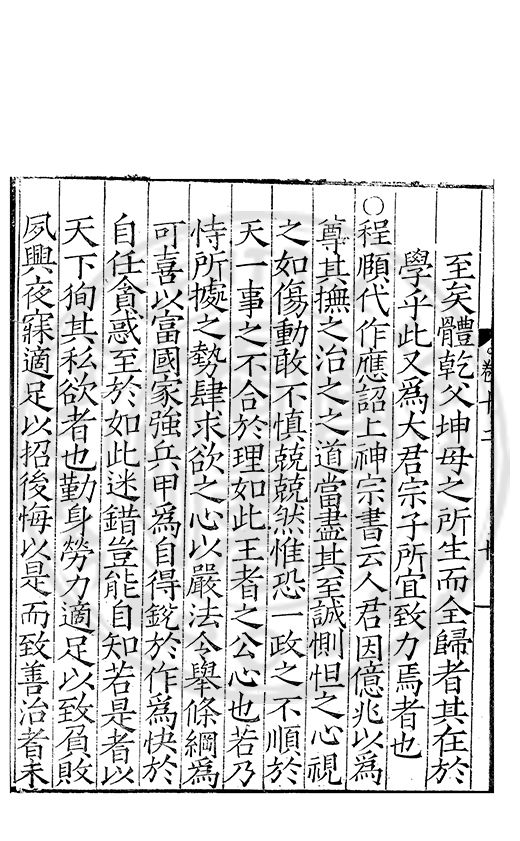 至矣體乾父坤母之所生而全歸者其在於
學乎此又為大君宗子所宜致力焉者也
○程頥代作應詔上神宗書云人君因億兆以為
尊其撫之治之之道當盡其至誠惻怛之心視
之如傷動敢不慎兢兢然惟恐一政之不順於
天一事之不合於理如此王者之公心也若乃
恃所據之勢肆求欲之心以嚴法令舉條綱為
可喜以富國家強兵甲為自得銳於作為快於
自任貪惑至於如此迷錯豈能自知若是者以
天下狥其私欲者也勤身勞力適足以致負敗
夙興夜寐適足以招後悔以是而致善治者未